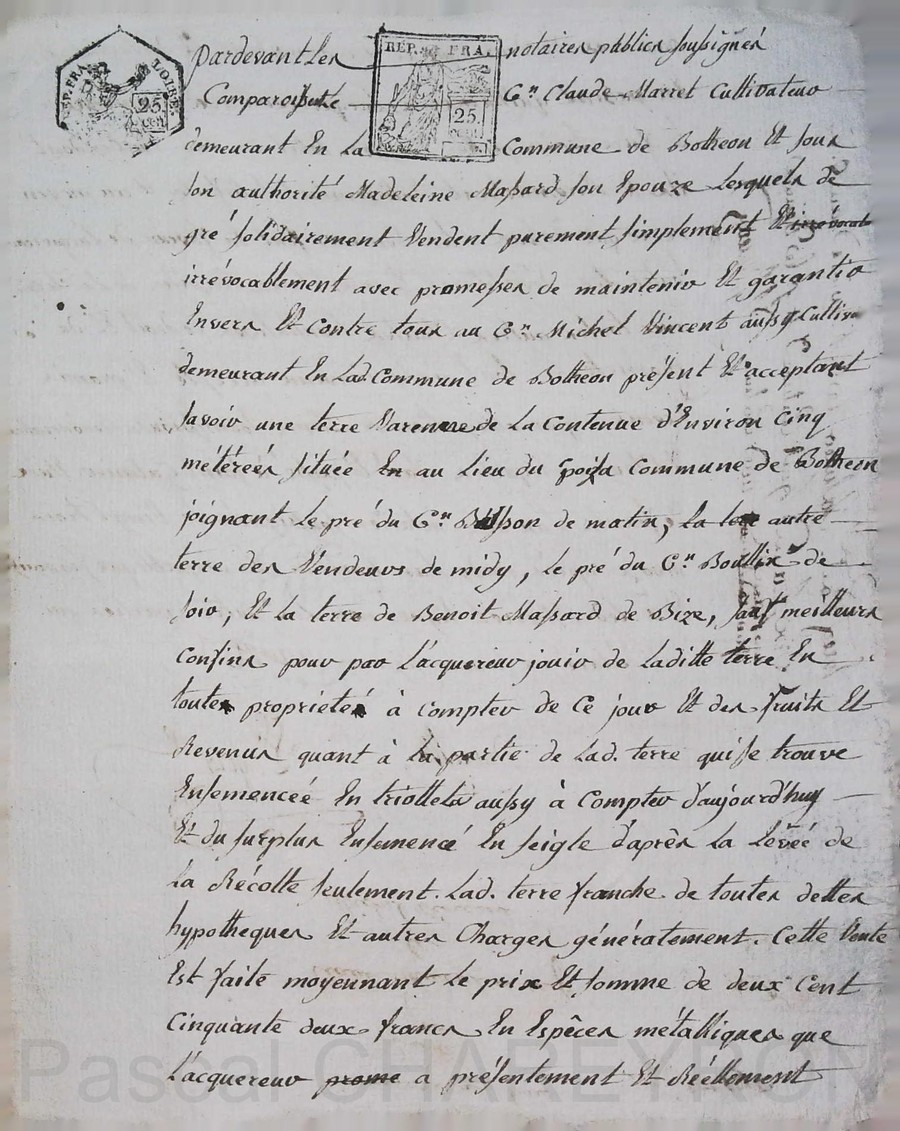 REP. FRA. LOIRE 25 cen.
REP. FRA. 25. cen.
pardevant Les notaires publics soussignés
Comparoissent C.en Claude Marret Cultivateur
demeurant En La Commune de Botheon Et sous
son authorité Madeleine Massard son Epouze Lesquels de
gré solidairement Vendent purement simplement Et irrévocabl
irrévocablement avec promesses de maintenir Et garantir
Envers Et Contre tous au C.en Michel Vincent aussy Cultiva
demeurant En Lad. Commune de Botheon présent Et acceptant
savoir une terre Varenne de La Contenue d'Environ Cinq
métérées située En au Lieu du commune de Botheon
joignant Le pré du C.en de matin, La autre
terre des Vendeurs de midy, Le pré du C.en de
soir, Et La terre de Benoit Massard de Bize, sauf meilleurs
Confins pour par L'acquereur jouir de Laditte terre En
toutes proprietés à Compter de Ce jour Et des fruits Et
Revenus quant à La partie de Lad. terre qui se trouve
Ensemencée En triollets aussy à Compter d'aujourd'huy
Et du surplus Ensemencé En seigle d'après La Levée de
La Récolte seulement. Lad. terre franche de toutes dettes
hypotheques Et autres Charges généralement. Cette Vente
Est faite moyennant Le prix Et somme de deux Cent
Cinquante deux francs En Espêces métalliques que
L'acquereur prome a présentement Et Réellement
Pascal CHAREYRON